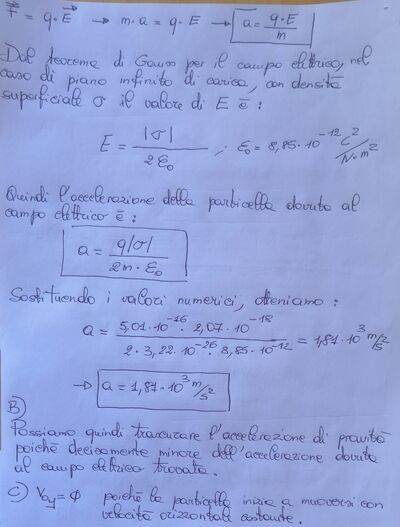 F⃗ = q·E⃗ → m·a = q·E → a = q·E / m
Dal teorema di Gauss per il campo elettrico, nel
caso di piano infinito di carica, con densità
superficiale σ il valore di E è:
E = |σ| / 2ε₀ ; ε₀ = 8,85·10⁻¹² C²/N·m²
Quindi l'accelerazione della particella dovuta al
campo elettrico è:
a = q|σ| / 2m·ε₀
Sostituendo i valori numerici, otteniamo:
a = 5,01·10⁻¹⁶· 2,07·10⁻¹² / 2·3,22·10⁻²⁶· 8,85·10⁻¹² = 1,81·10³ m/s²
→ a = 1,81·10³ m/s²
B)
Possiamo quindi trascurare l'accelerazione di gravità
poiché decisamente minore dell'accelerazione dovuta
al campo elettrico trovata.
C) V₀y = ϕ poiché la particella inizia a muoversi con
velocità orizzontale costante.